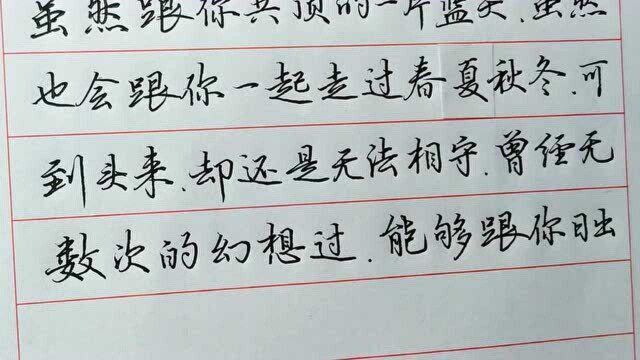 虽然跟你共顶的一片蓝天.虽然
也会跟你一起走过春夏秋冬.可
到头来.却还是无法相守.曾经无
数次的幻想过.能够跟你日出